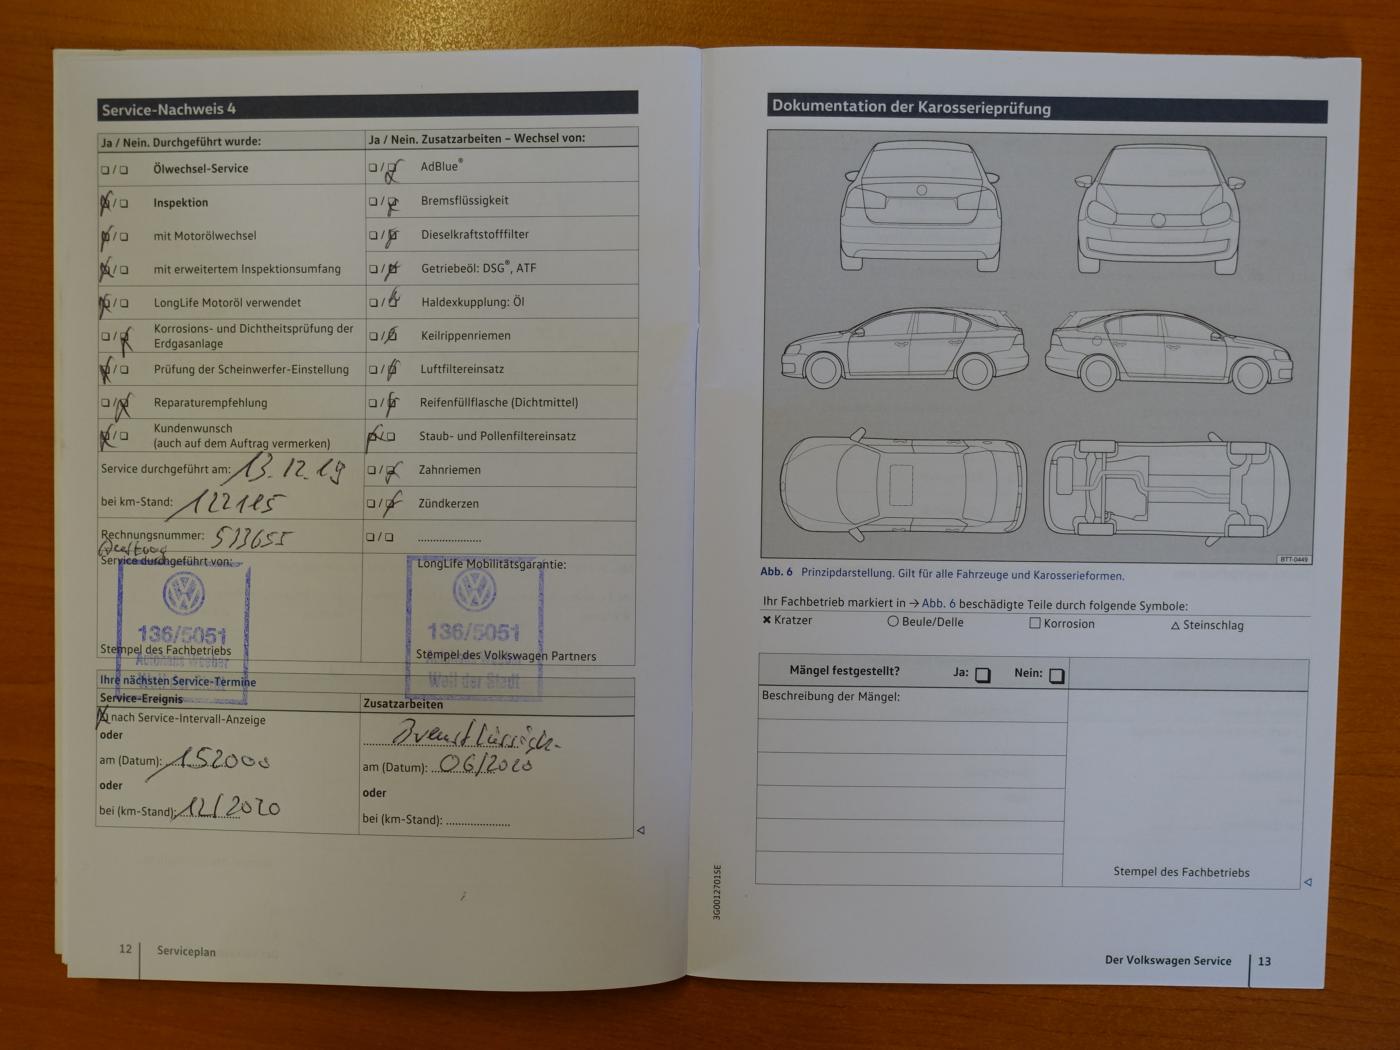 Service-Nachweis 4
Ja / Nein. Durchgeführt wurde:
Ölwechsel-Service
Inspektion
mit Motorölwechsel
mit erweitertem Inspektionsumfang
LongLife Motoröl verwendet
Korrosions- und Dichtheitsprüfung der
Erdgasanlage
Prüfung der Scheinwerfer-Einstellung
Reparaturempfehlung
Kundenwunsch
(auch auf dem Auftrag vermerken)
Service durchgeführt am: 13.12.19
bei km-Stand: 122185
Rechnungsnummer: 513655
Service durchgeführt von:
136/5051
Autohaus Weeber
Weil der Stadt
Stempel des Fachbetriebs
Ja / Nein. Zusatzarbeiten – Wechsel von:
AdBlue®
Bremsflüssigkeit
Dieselkraftstofffilter
Getriebeöl: DSG®, ATF
Haldexkupplung: Öl
Keilrippenriemen
Luftfiltereinsatz
Reifenfüllflasche (Dichtmittel)
Staub- und Pollenfiltereinsatz
Zahnriemen
Zündkerzen
LongLife Mobilitätsgarantie:
136/5051
Autohaus Weeber
Weil der Stadt
Stempel des Volkswagen Partners
Ihre nächsten Service-Termine
Service-Ereignis
nach Service-Intervall-Anzeige
oder
am (Datum): 152000
oder
bei (km-Stand): 12/2020
Zusatzarbeiten
Bremsflüssigk.
am (Datum): 06/2020
oder
bei (km-Stand):
12 Serviceplan
Dokumentation der Karosserieprüfung
BTT-0449
Abb. 6 Prinzipdarstellung. Gilt für alle Fahrzeuge und Karosserieformen.
Ihr Fachbetrieb markiert in → Abb. 6 beschädigte Teile durch folgende Symbole:
✖ Kratzer ○ Beule/Delle □ Korrosion △ Steinschlag
Mängel festgestellt? Ja: Nein:
Beschreibung der Mängel:
Stempel des Fachbetriebs
3G0012701SE
Der Volkswagen Service 13